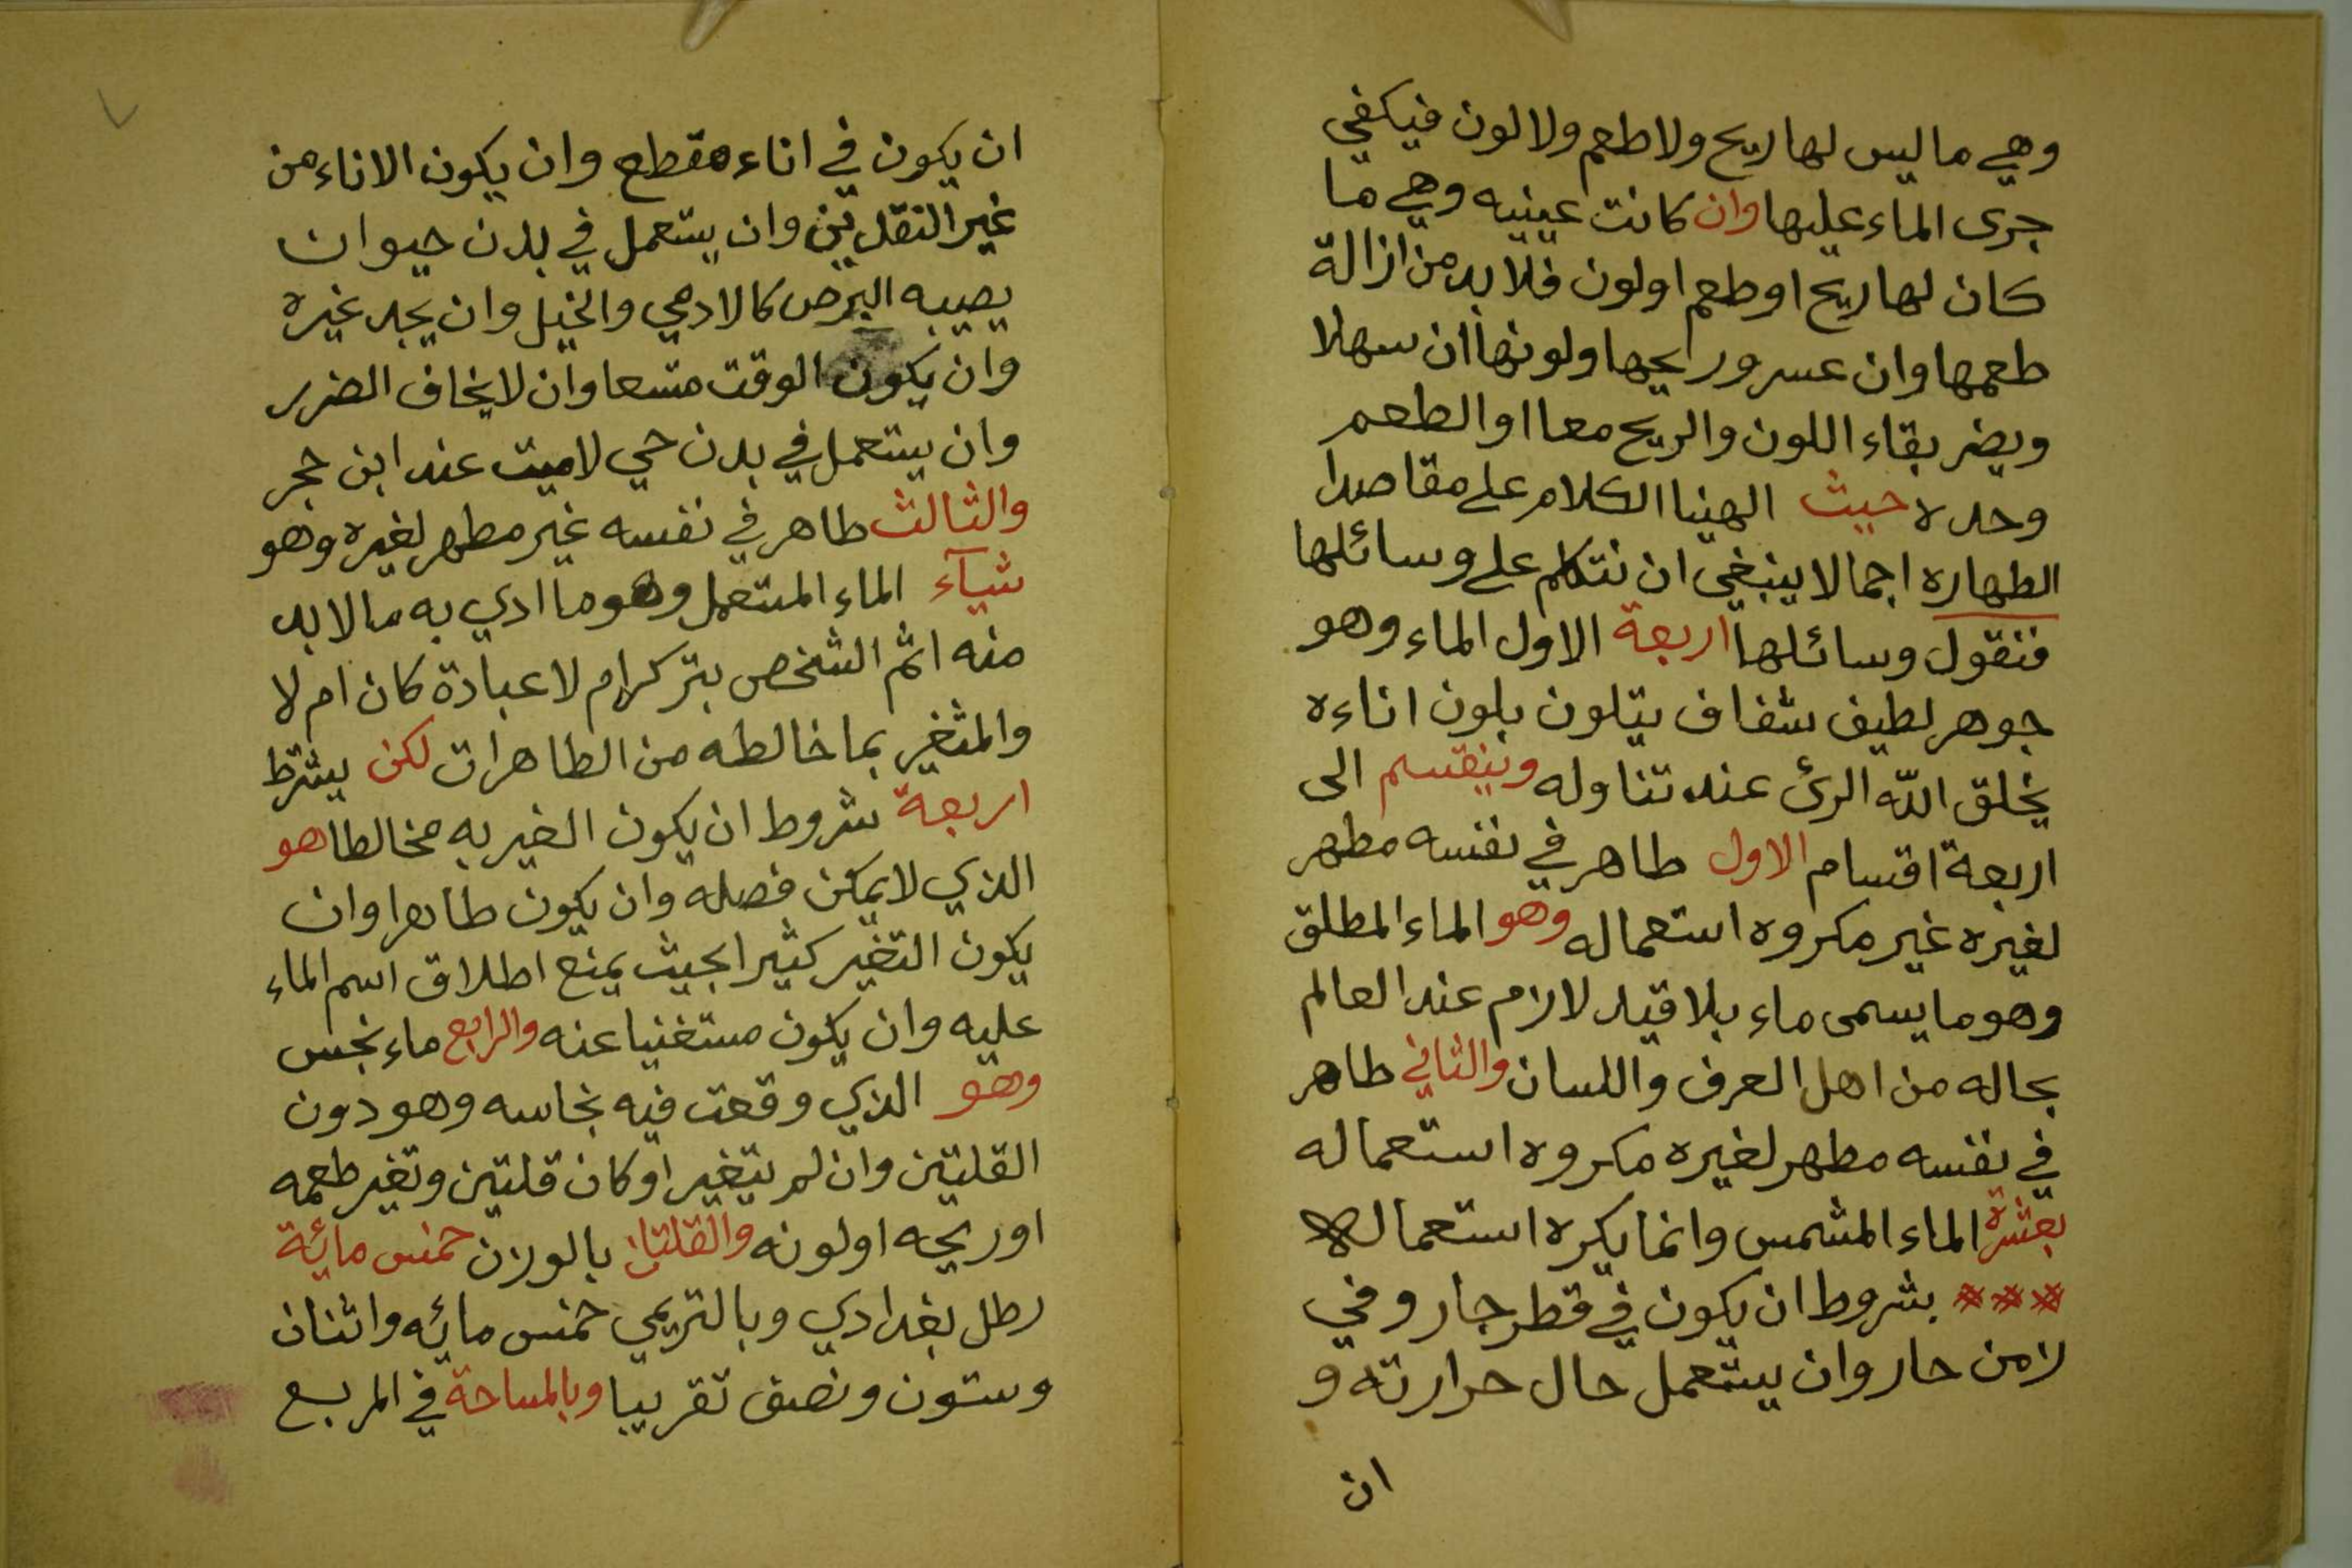 وهي ما ليس لها ريح ولا طعم ولا لون فيكفي
جرى الماء عليها وان كانت عينيه وهي ما
كان لها ريح او طعم او لون فلا بد من ازالة
طعمها وان عسر وريحها ولونها ان سهلا
ويضر بقاء اللون والريح معا او الطعم
وحده حيث انهينا الكلام على مقاصدا
الطهاره اجمالا ينبغي ان نتكلم على وسائلها
فنقول وسائلها اربعة الاول الماء وهو
جوهر لطيف شفاف يتلون بلون اناءه
يخلق الله الرئ عند تناوله وينقسم الى
اربعة اقسام الاول طاهر في نفسه مطهر
لغيره غير مكروه استعماله وهو الماء المطلق
وهو ما يسمى ماء بلا قيد لازم عند العالم
بحاله من اهل العرف واللسان والثاني طاهر
في نفسه مطهر لغيره مكروه استعماله
بعشرة الماء المشمس وانما يكره استعماله
بشروط ان يكون في قطر حار وفي
زمن حار وان يستعمل حال حرارته و
ان
ان يكون في اناء مقطع وان يكون الاناء من
غير النقدين وان يستعمل في بدن حيوان
يصيبه البرص كالادمي والخيل وان يجد غيره
وان يكون الوقت متسعا وان لا يخاف الضرر
وان يستعمل في بدن حي لا ميت عند ابن حجر
والثالث طاهر في نفسه غير مطهر لغيره وهو
شيآء الماء المستعمل وهو ما ادي به ما لا بد
منه اثم الشخص بتركه ام لا عبادة كان ام لا
والمتغير بما خالطه من الطاهرات لكن يشترط
اربعة شروط ان يكون الغير به مخالطا هو
الذي لا يمكن فصله وان يكون طاهرا وان
يكون التغير كثيرا بحيث يمنع اطلاق اسم الماء
عليه وان يكون مستغنيا عنه والرابع ماء نجس
وهو الذي وقعت فيه نجاسه وهو دون
القلتين وان لم يتغير او كان قلتين وتغير طعمه
او ريحه او لونه والقلتان بالوزن خمس مائة
رطل بغدادي وبالتريمي خمس مائه واثنان
وستون ونصف تقريبا وبالمساحة في المربع